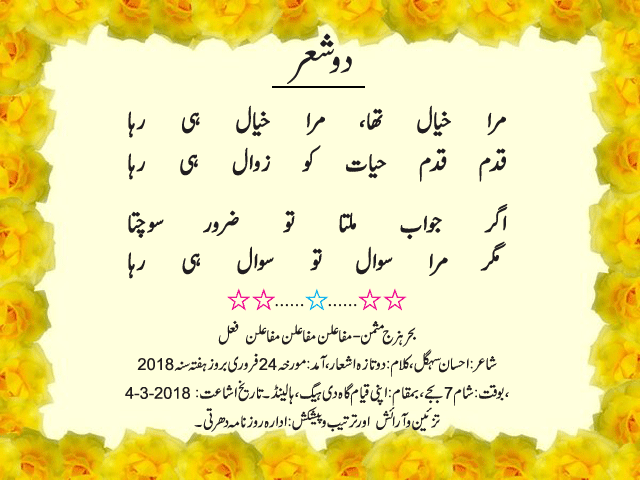 دو شعر
مرا خیال تھا، مرا خیال ہی رہا
قدم قدم حیات کو زوال ہی رہا
اگر جواب ملتا تو ضرور سوچتا
مگر مرا سوال تو سوال ہی رہا
☆☆......☆......☆☆
بحر ہزج مثمن-مفاعلن مفاعلن مفاعلن فعل
شاعر:احسان سہگل، کلام:دو تازہ اشعار، آمد:مورخہ 24 فروری بروز ہفتہ سنہ 2018
،بوقت:شام 7 بجے، بمقام:اپنی قیام گاہ دی ہیگ، ہالینڈ۔تاریخ اشاعت: 2018-3-4
تزئین و آرائش اور ترتیب و پیشکش:ادارہ روزنامہ دھرتی۔